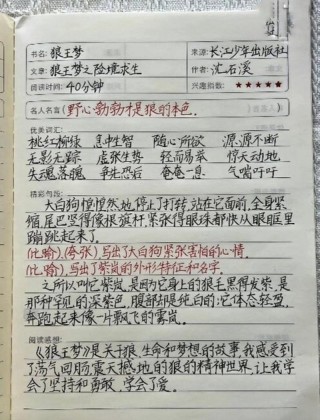 书名: 狼王梦 来源: 长江少年出版社
文章: 狼王梦之险境求生 作者: 沈石溪
阅读时间: 40分钟 兴趣指数: ★★★★★
名人名言（野心勃勃才是狼的本色.
优美词汇:
桃红柳绿 急中生智 随心所欲 源源不断
无影无踪 虚张生势 轻而易举 惊天动地.
失魂落魄 争先恐后 奄奄一息 气喘吁吁
精彩句段:
大白狗惶惶然地,停止了打转,站在它面前,全身紧
缩,尾巴竖得像根旗杆,紧张得眼珠都快从眼眶里
蹦跳起来了.
(比喻)(夸张)写出了大白狗紧张害怕的心情.
(比喻),写出了紫岚的外形特征和名字.
之所以叫它紫岚,是因为它身上的狼毛黑得发紫,是
那种罕见的深紫色,腹部却是纯白的;它体态轻盈,
奔跑起来像一片飘飞的雾岚。
阅读感想:
《狼王梦》是关于狼,生命和梦想的故事,我感受到
了荡气回肠震天撼地的狼的精神世界,让我学
会了坚持和勇敢,学会了爱。